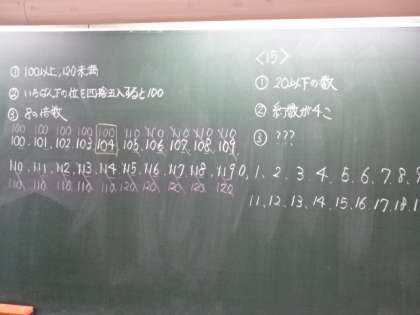 ① 100以上、120未満
② いちばん下の位を四捨五入すると100
③ 8の倍数
100 100 100 100 100 110 110 110 110 110
100. 101. 102. 103. 104. 105. 106. 107. 108. 109.
110. 111. 112. 113. 114. 115. 116. 117. 118. 119
110 110 110 110 110 120 120 120 120 120
〈15〉
① 20以下の数
② 約数が4こ
③ ???
0. 1. 2. 3. 4. 5. 6. 7. 8. 9
11. 12. 13. 14. 15. 16. 17. 18. 1